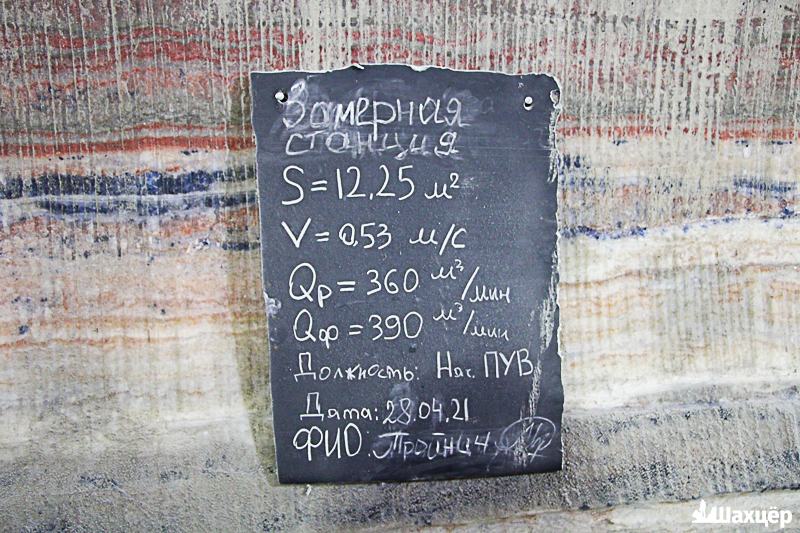 Замерная
станция
S = 12,25 м²
V = 0,53 м/с
Qр = 360 м³/мин
Qф = 390 м³/мин
Должность: Нач. ПУВ
Дата: 28.04.21
ФИО.
Шахцёр